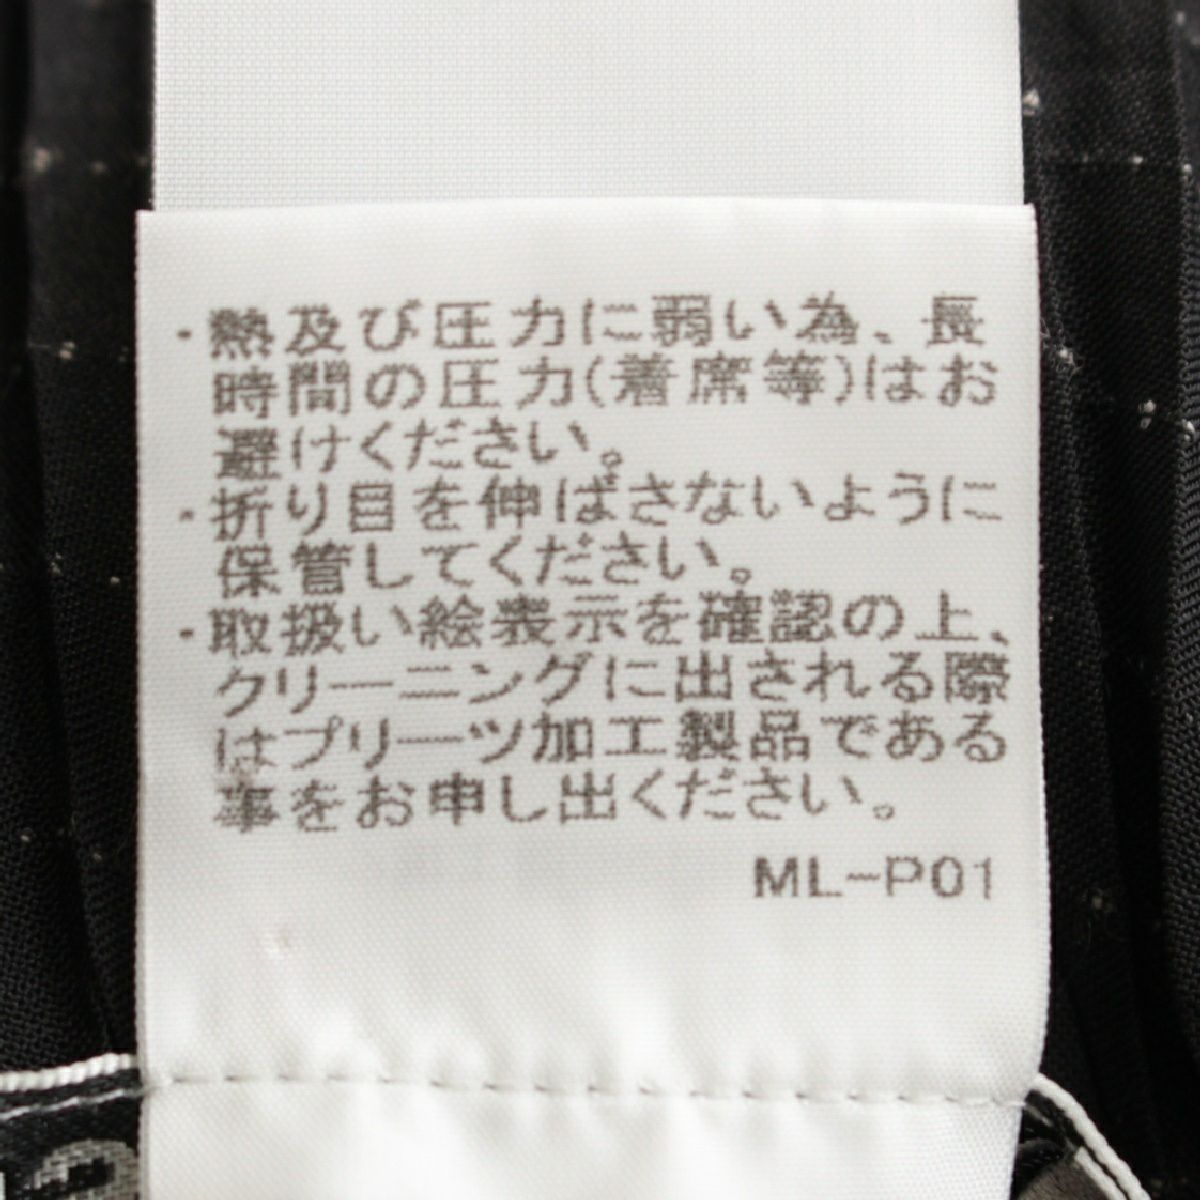 ・熱及び圧力に弱い為、長
時間の圧力(着席等)はお
避けください。
・折り目を伸ばさないように
保管してください。
・取扱い絵表示を確認の上、
クリーニングに出される際
はプリーツ加工製品である
事をお申し出ください。
ML-P01